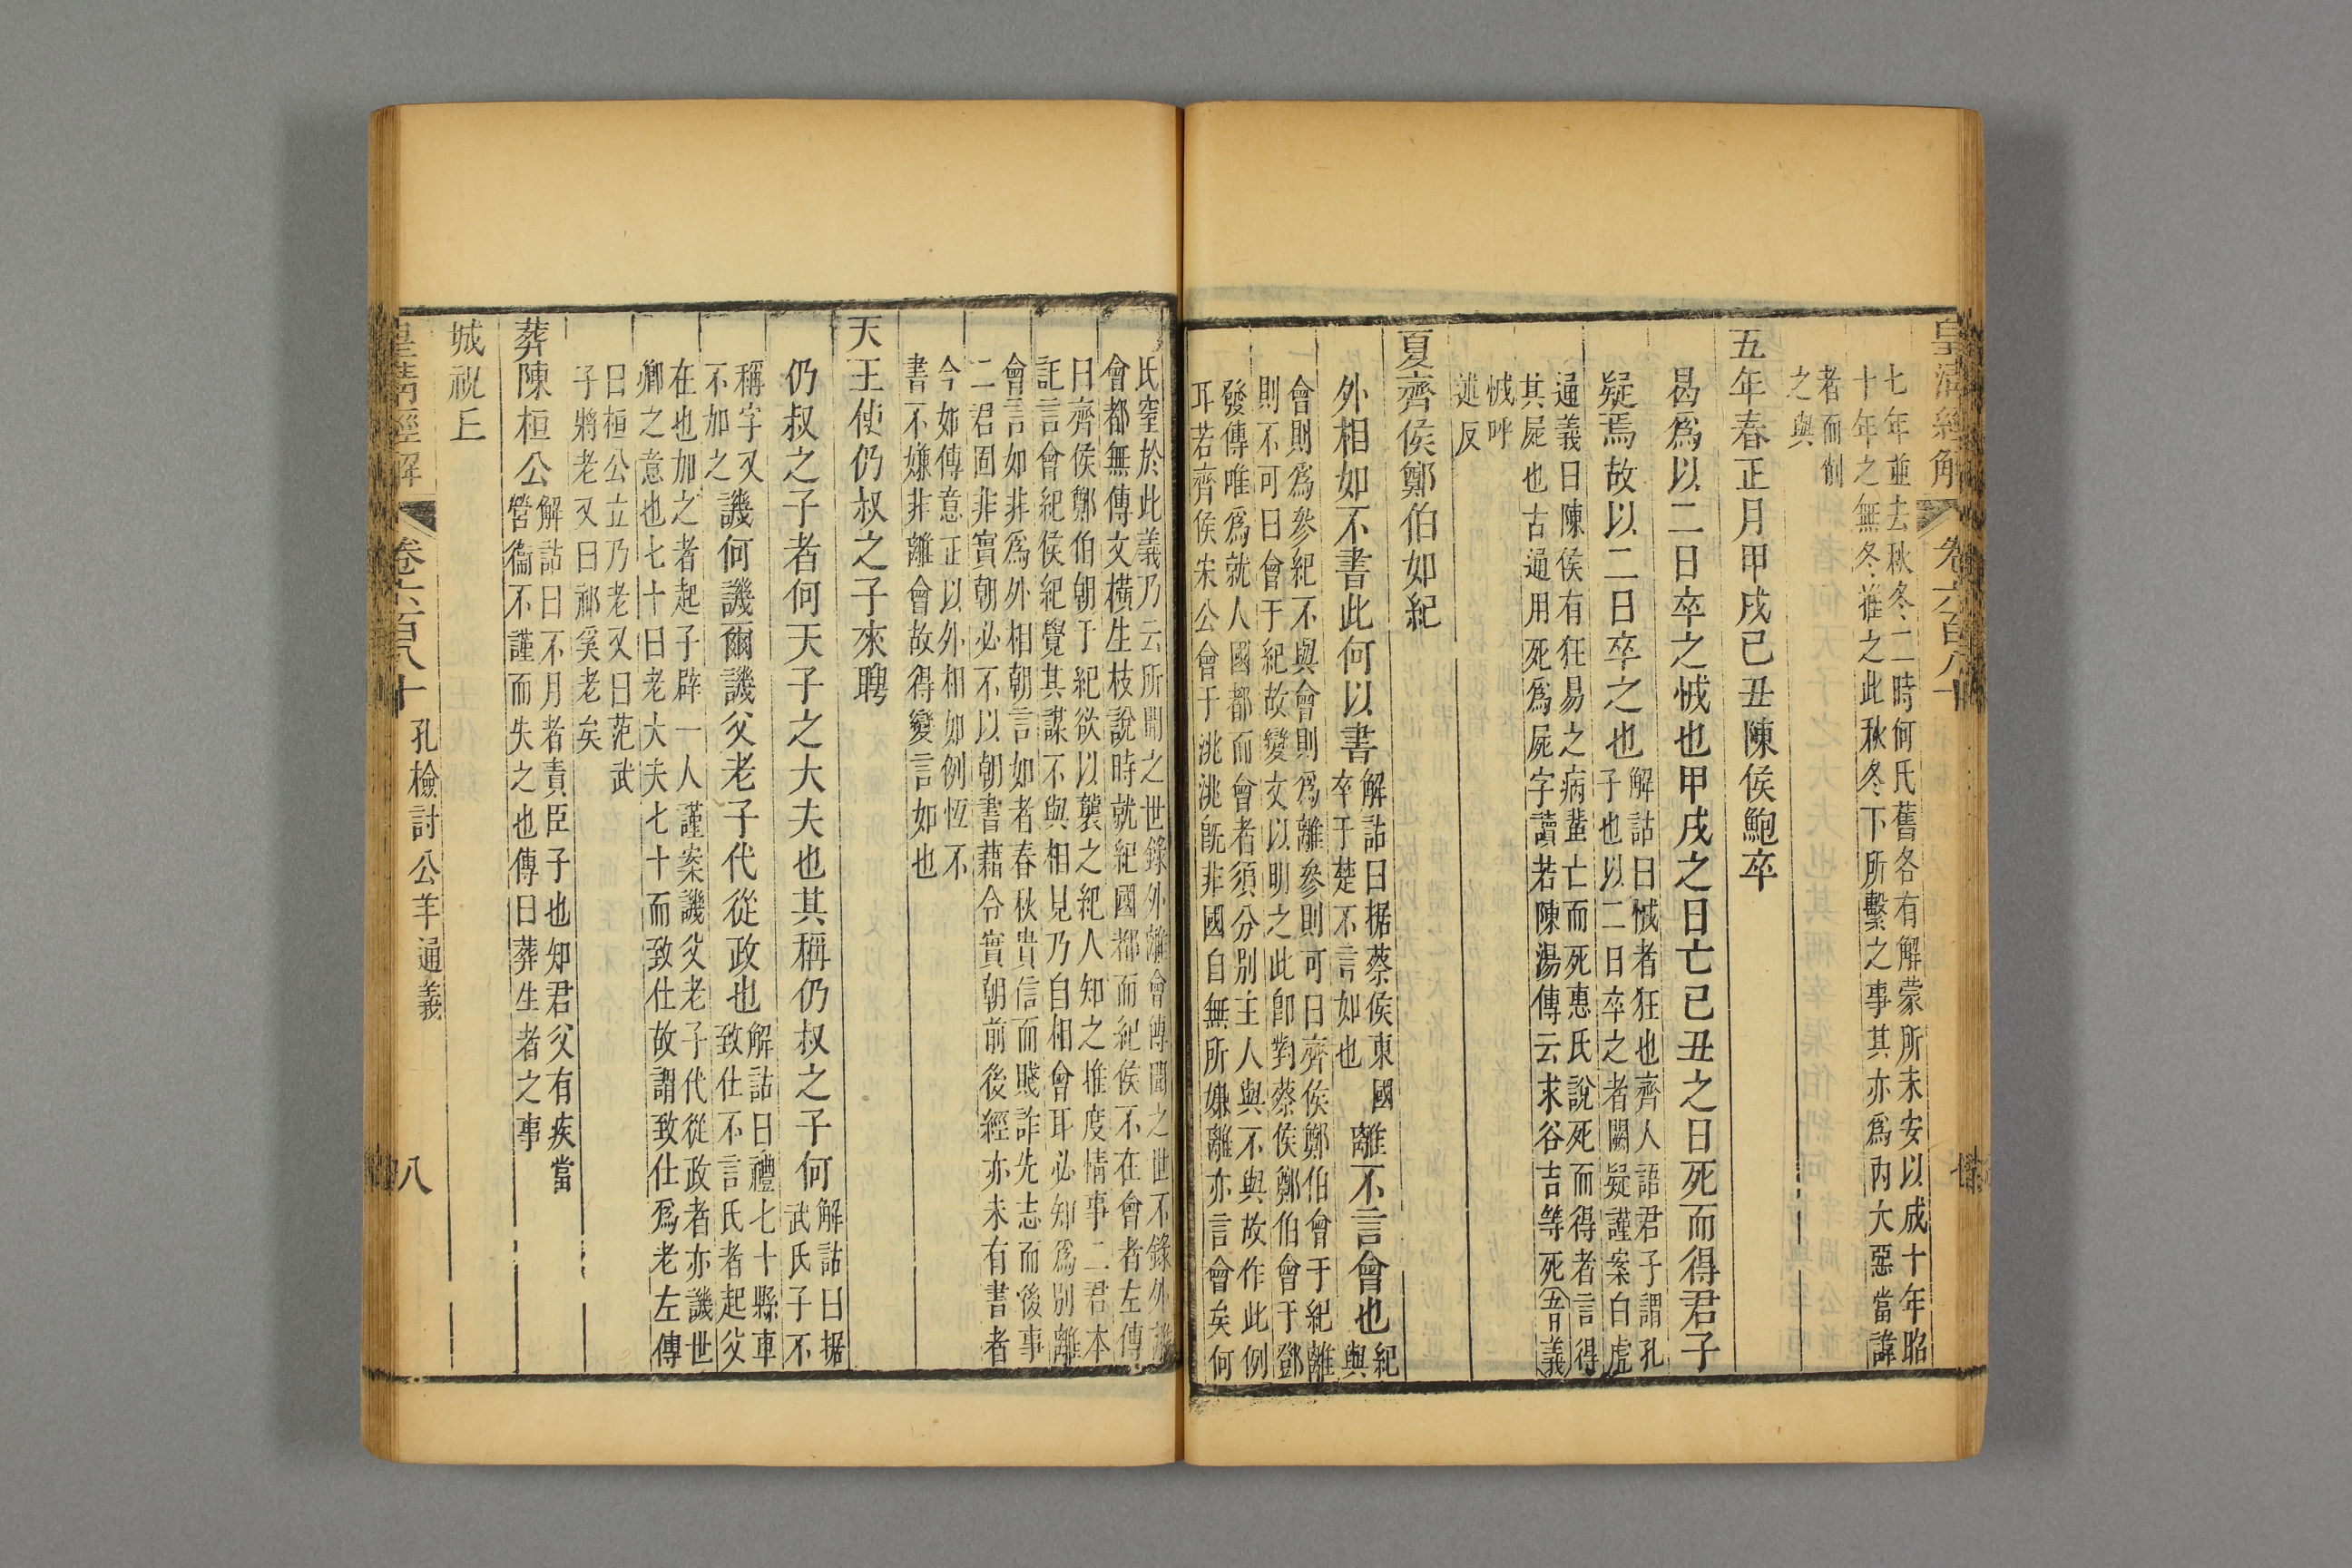 皇清經解 卷六百八十
七年並去秋冬二時何氏舊各有解蒙所未安以成十年昭
十年之無冬推之此秋冬下所繫之事其亦為內大惡當諱
者而削
之與
五年春正月甲戌己丑陳侯鮑卒
曷為以二日卒之怴也甲戌之日亡己丑之日死而得君子
疑焉故以二日卒之也
解詁曰怴者狂也齊人語君子謂孔
子也以二日卒之者闕疑謹案白虎
通義曰陳侯有狂易之病蜚亡而死惠氏說死而得者言得
其屍也古通用死為屍字讀若陳湯傳云求谷吉等死音義
怴呼
述反
夏齊侯鄭伯如紀
外相如不書此何以書
解詁曰据蔡侯東國
卒于楚不言如也
離不言會也
紀
與
會則為參紀不與會則為離參則可曰齊侯鄭伯會于紀離
則不可曰會于紀故變文以明之此卽對蔡侯鄭伯會于鄧
發傳唯為就人國都而會者須分別主人與不與故作此例
耳若齊侯宋公會于洮洮旣非國自無所嫌離亦言會矣何
氏窒於此義乃云所聞之世錄外離會傳聞之世不錄外
會都無傳文橫生枝說時就紀國都而紀侯不在會者左傳
曰齊侯鄭伯朝于紀欲以襲之紀人知之推度情事二君本
託言會紀侯紀覺其謀不與相見乃自相會耳必知為別離
會言如非為外相朝言如者春秋貴信而賤詐先志而後事
二君固非實朝必不以朝書藉令實朝前後經亦未有書者
今如傳意正以外相如例恆不
書不嫌非離會故得變言如也
天王使仍叔之子來聘
仍叔之子者何天子之大夫也其稱仍叔之子何
解詁曰据
武氏子不
稱字又
不加之
譏何譏爾譏父老子代從政也
解詁曰禮七十縣車
致仕不言氏者起父
在也加之者起子辟一人謹案譏父老子代從政者亦譏世
卿之意也七十曰老大夫七十而致仕故謂致仕為老左傳
曰桓公立乃老又曰范武
子將老又曰祁奚老矣
葬陳桓公
解詁曰不月者責臣子也知君父有疾當
營衞不謹而失之也傳曰葬生者之事
城祝丘
皇清經解 卷六百八十 孔檢討公羊通義 八